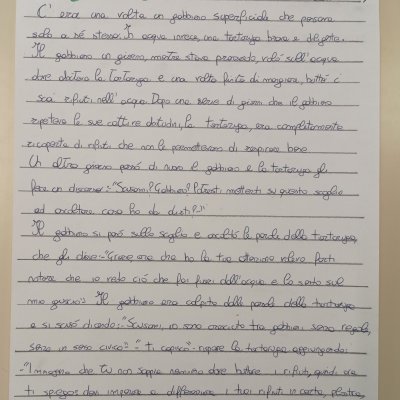 C'era una volta un gabbiano superficiale che pensava
solo a sé stesso. In acqua invece, una tartaruga brava e diligente.
Il gabbiano un giorno, mentre stava pranzando, volò sull'acqua
dove abitava la tartaruga e una volta finito di mangiare, buttò i
suoi rifiuti nell'acqua. Dopo una serie di giorni dove il gabbiano
ripeteva le sue cattive abitudini, la tartaruga, era completamente
ricoperta di rifiuti che non le permettevano di respirare bene.
Un altro giorno passò di nuovo il gabbiano e la tartaruga gli
fece un discorso: "Scusami? Gabbiano? Potresti metterti su questo scoglio
ad ascoltare cosa ho da dirti?"
Il gabbiano si posò sullo scoglio e ascoltò le parole della tartaruga,
che gli disse: "Grazie, ora che ho la tua attenzione volevo farti
notare che io vedo ciò che fai fuori dall'acqua e lo sento sul
mio guscio". Il gabbiano era colpito dalle parole della tartaruga
e si scusò dicendo: "Scusami, io sono cresciuto tra gabbiani senza regole,
senza un senso civico". "Ti capisco" rispose la tartaruga aggiungendo:
"Immagino che tu non sappia nemmeno dove buttare i rifiuti, quindi ora
ti spiego: devi imparare a differenziare i tuoi rifiuti in carta, plastica,